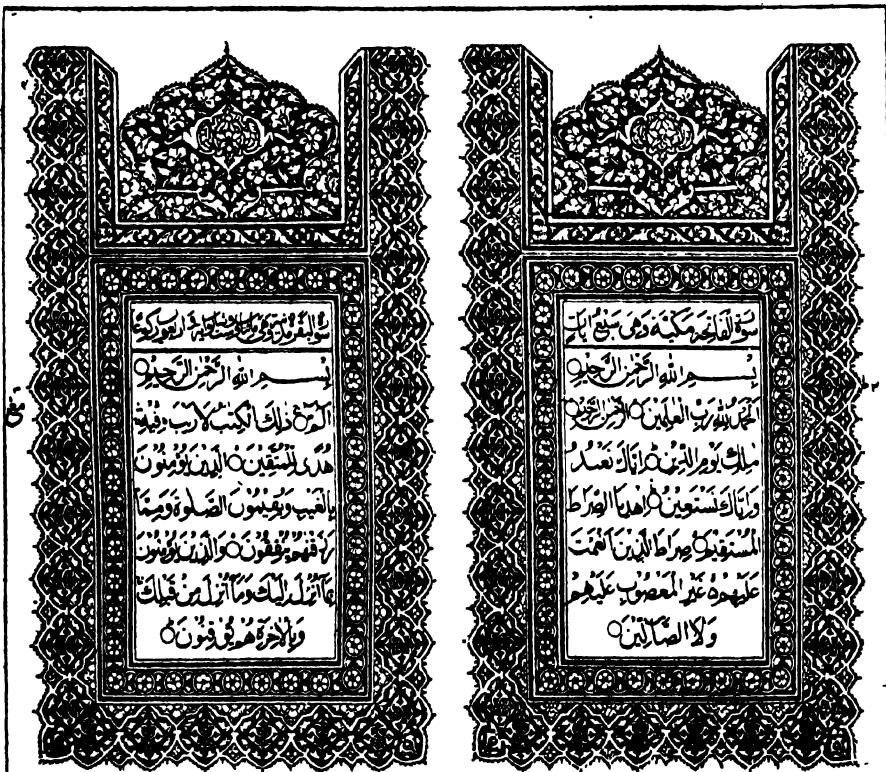 سورة الفاتحة مكية وهي سبع ايات
بسم الله الرحمن الرحيم
الحمد لله رب العلمين الرحمن الرحيم
ملك يوم الدين اياك نعبد
واياك نستعين اهدنا الصراط
المستقيم صراط الذين انعمت
عليهم غير المغضوب عليهم
ولا الضالين
سورة البقرة مدنية وهي
بسم الله الرحمن الرحيم
الم ذلك الكتب لا ريب فيه
هدى للمتقين الذين يؤمنون
بالغيب ويقيمون الصلوة ومما
رزقنهم ينفقون والذين يؤمنون
بما انزل اليك وما انزل من قبلك
وبالاخرة هم يوقنون